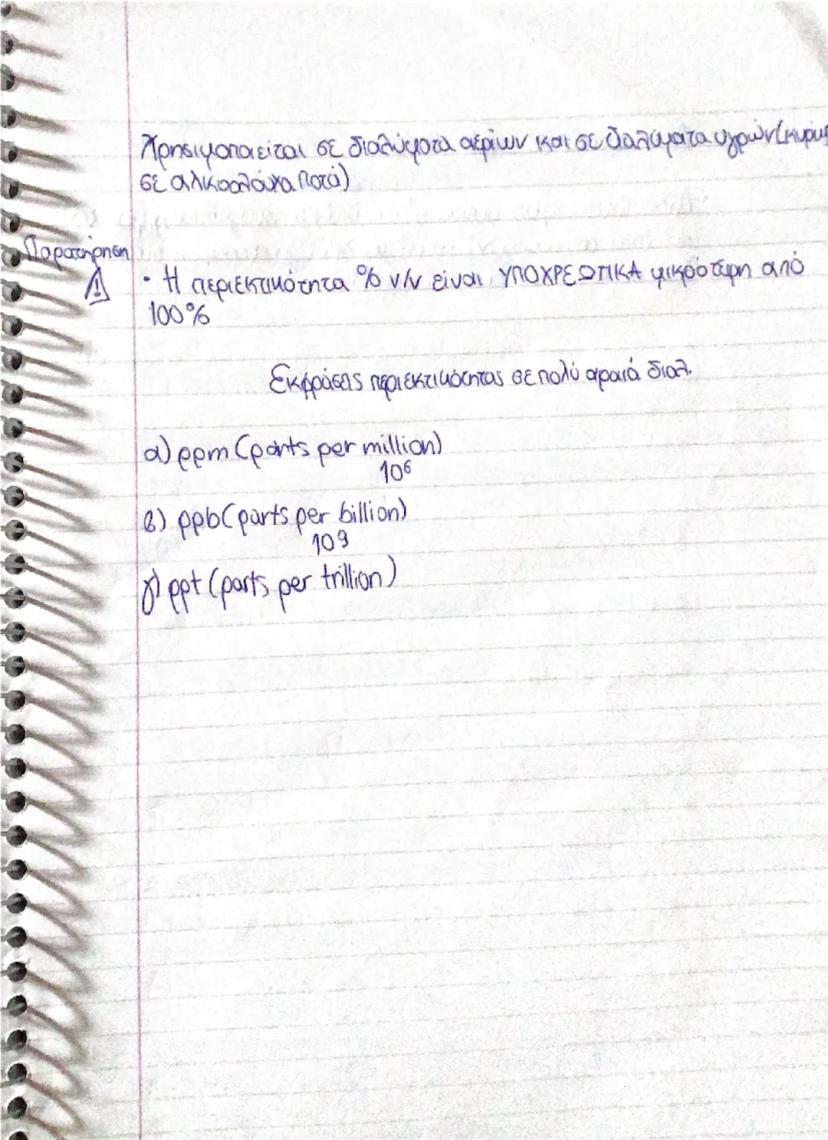 Χρησιμοποιείται σε διαλύματα αερίων και σε διαλύματα υγρών (κυρίως
σε αλκοολούχα ποτά)
Παρατήρηση
! • Η περιεκτικότητα % v/v είναι ΥΠΟΧΡΕΩΤΙΚΑ μικρότερη από
100%
Εκφράσεις περιεκτικότητας σε πολύ αραιά διαλ.
α) ppm (parts per million)
10⁶
β) ppb (parts per billion)
10⁹
γ) ppt (parts per trillion)